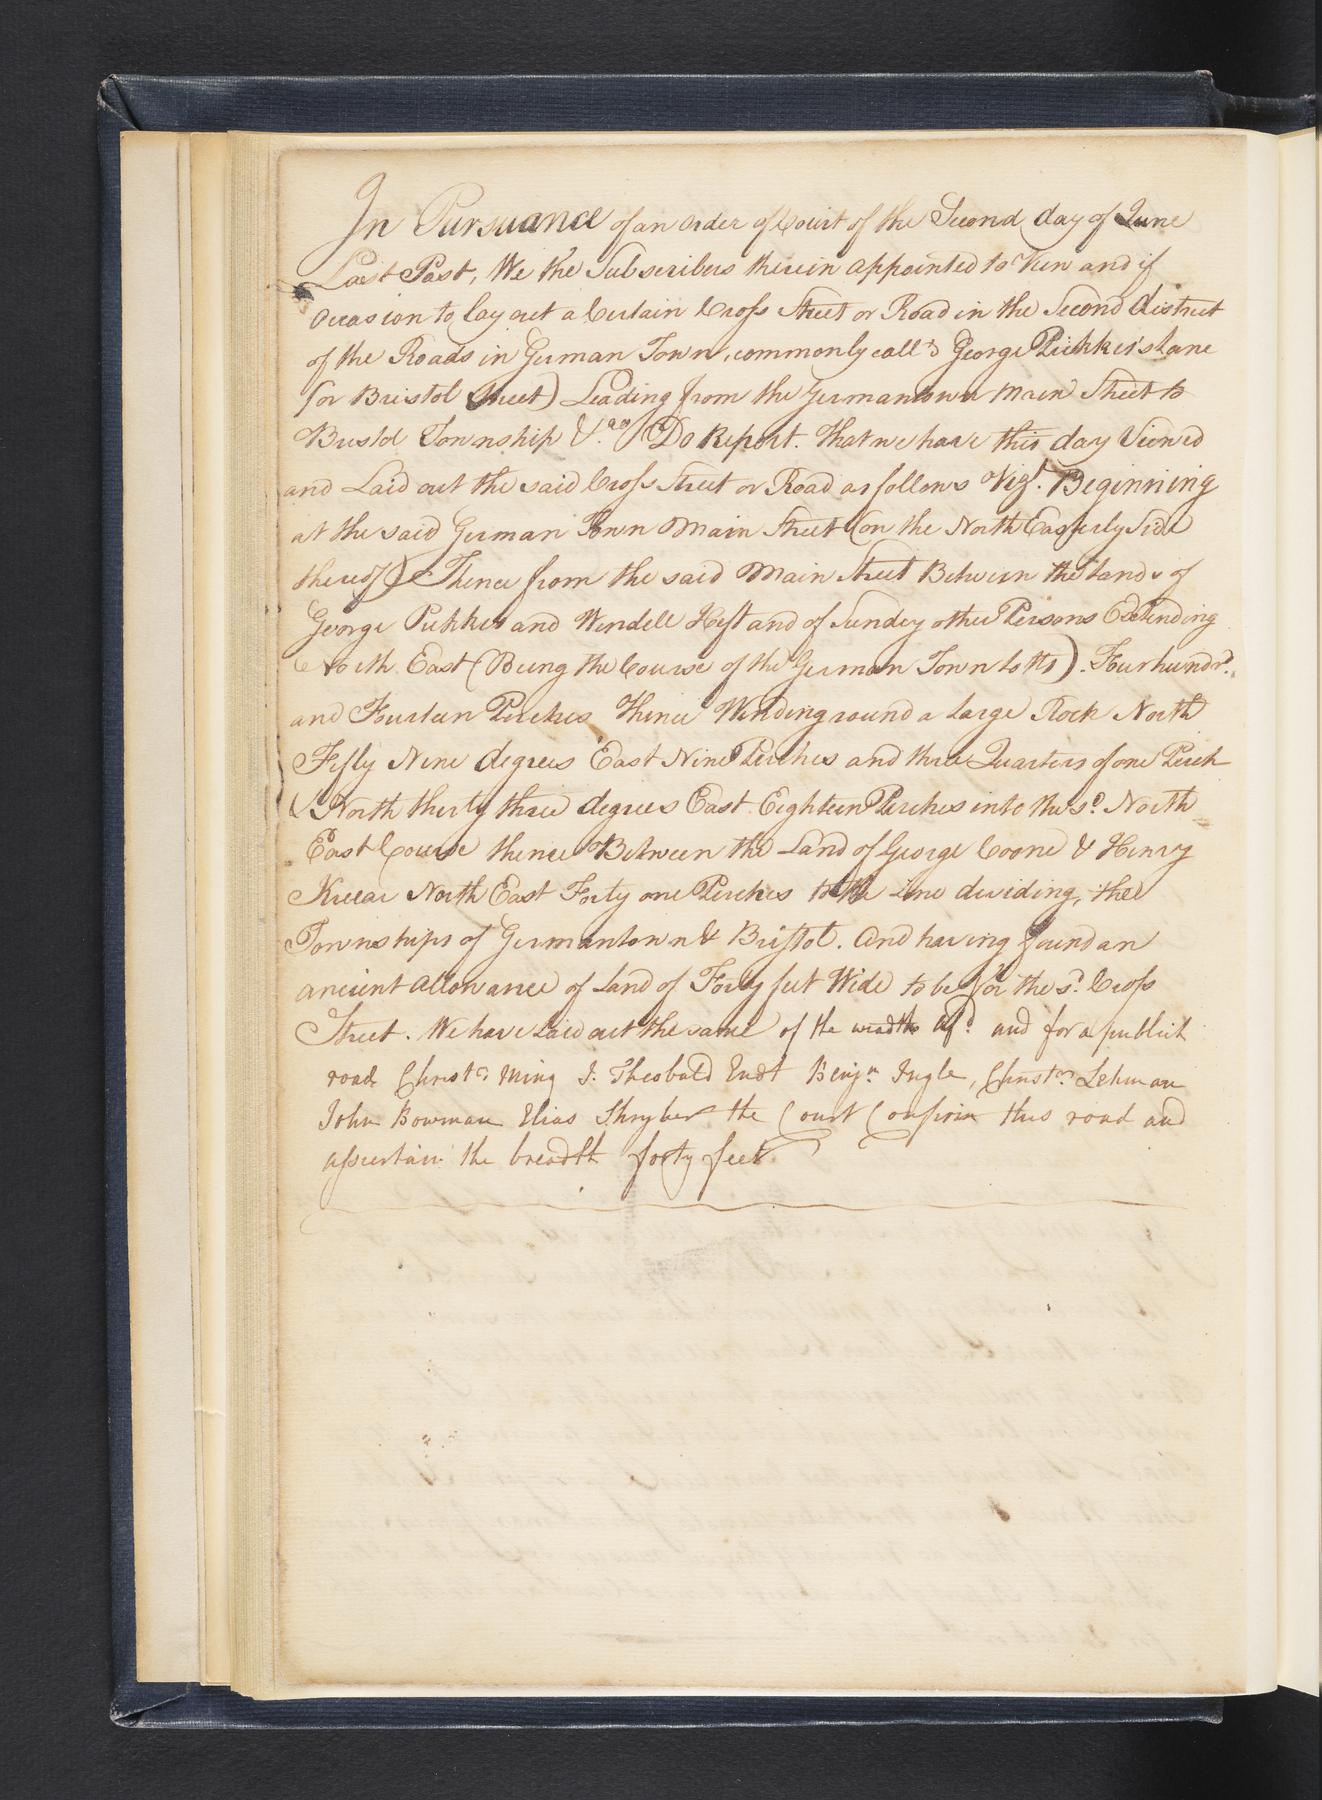 In Pursuance of an order of Court of the Second day of June
Last Past, We the Subscribers therein appointed to View and if
Occasion to lay out a Certain Cross Street or Road in the Second district
of the Roads in German Town, commonly call'd George Pickker's Lane
(or Bristol Street) Leading from the Germantown Main Street to
Bristol Township &.ca Do Report. That we have this day Viewed
and Laid out the said Cross Street or Road as follows Vizt. Beginning
at the said German Town Main Street (on the North Easterly Side
thereof) Thence from the said Main Street Between the Lands of
George Pickker and Wendell Heft and of Sundry other Persons Extending
North East (Being the Course of the German Town Lotts). Four hundrd.
and Fourteen Perches Thence Winding round a Large Rock North
Fifty Nine degrees East Nine Perches and three Quarters of one Perch
& North thirty three degrees East Eighteen Perches into the sd. North
East Course thence Between the Land of George Coone & Henry
North East Forty one Perches to the Line dividing, the
Townships of Germantown & Bristol. And having found an
ancient allowance of Land of Forty feet Wide to be for the sd. Cross
Street. We have Laid out the same of the weadth afd. and for a publick
road Christr. Ming J. Theobald Endt Benjn. Ingle, Christr. Lehman
John Bowman Elias Shryber the Court Confirm this road and
assertain the breadth forty feet